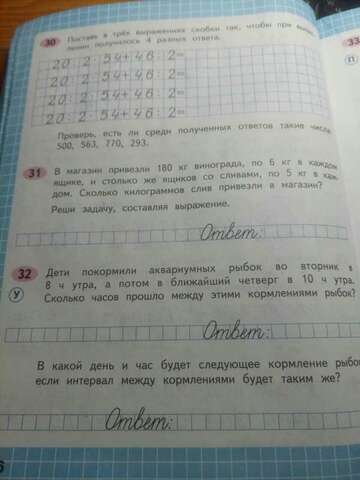 30 Поставь в трёх выражениях скобки так, чтобы при
лении получилось 4 разных ответа.
20 : 2 · 54 + 46 : 2 =
20 : 2 · 54 + 46 : 2 =
20 : 2 · 54 + 46 : 2 =
20 : 2 · 54 + 46 : 2 =
Проверь, есть ли среди полученных ответов такие числа
500, 563, 770, 293.
31 В магазин привезли 180 кг винограда, по 6 кг в каждом
ящике, и столько же ящиков со сливами, по 5 кг в каж-
дом. Сколько килограммов слив привезли в магазин?
Реши задачу, составляя выражение.
Ответ:
32 Дети покормили аквариумных рыбок во вторник в
У 8 ч утра, а потом в ближайший четверг в 10 ч утра.
Сколько часов прошло между этими кормлениями рыбок?
Ответ:
В какой день и час будет следующее кормление рыбок
если интервал между кормлениями будет таким же?
Ответ:
6
33
П